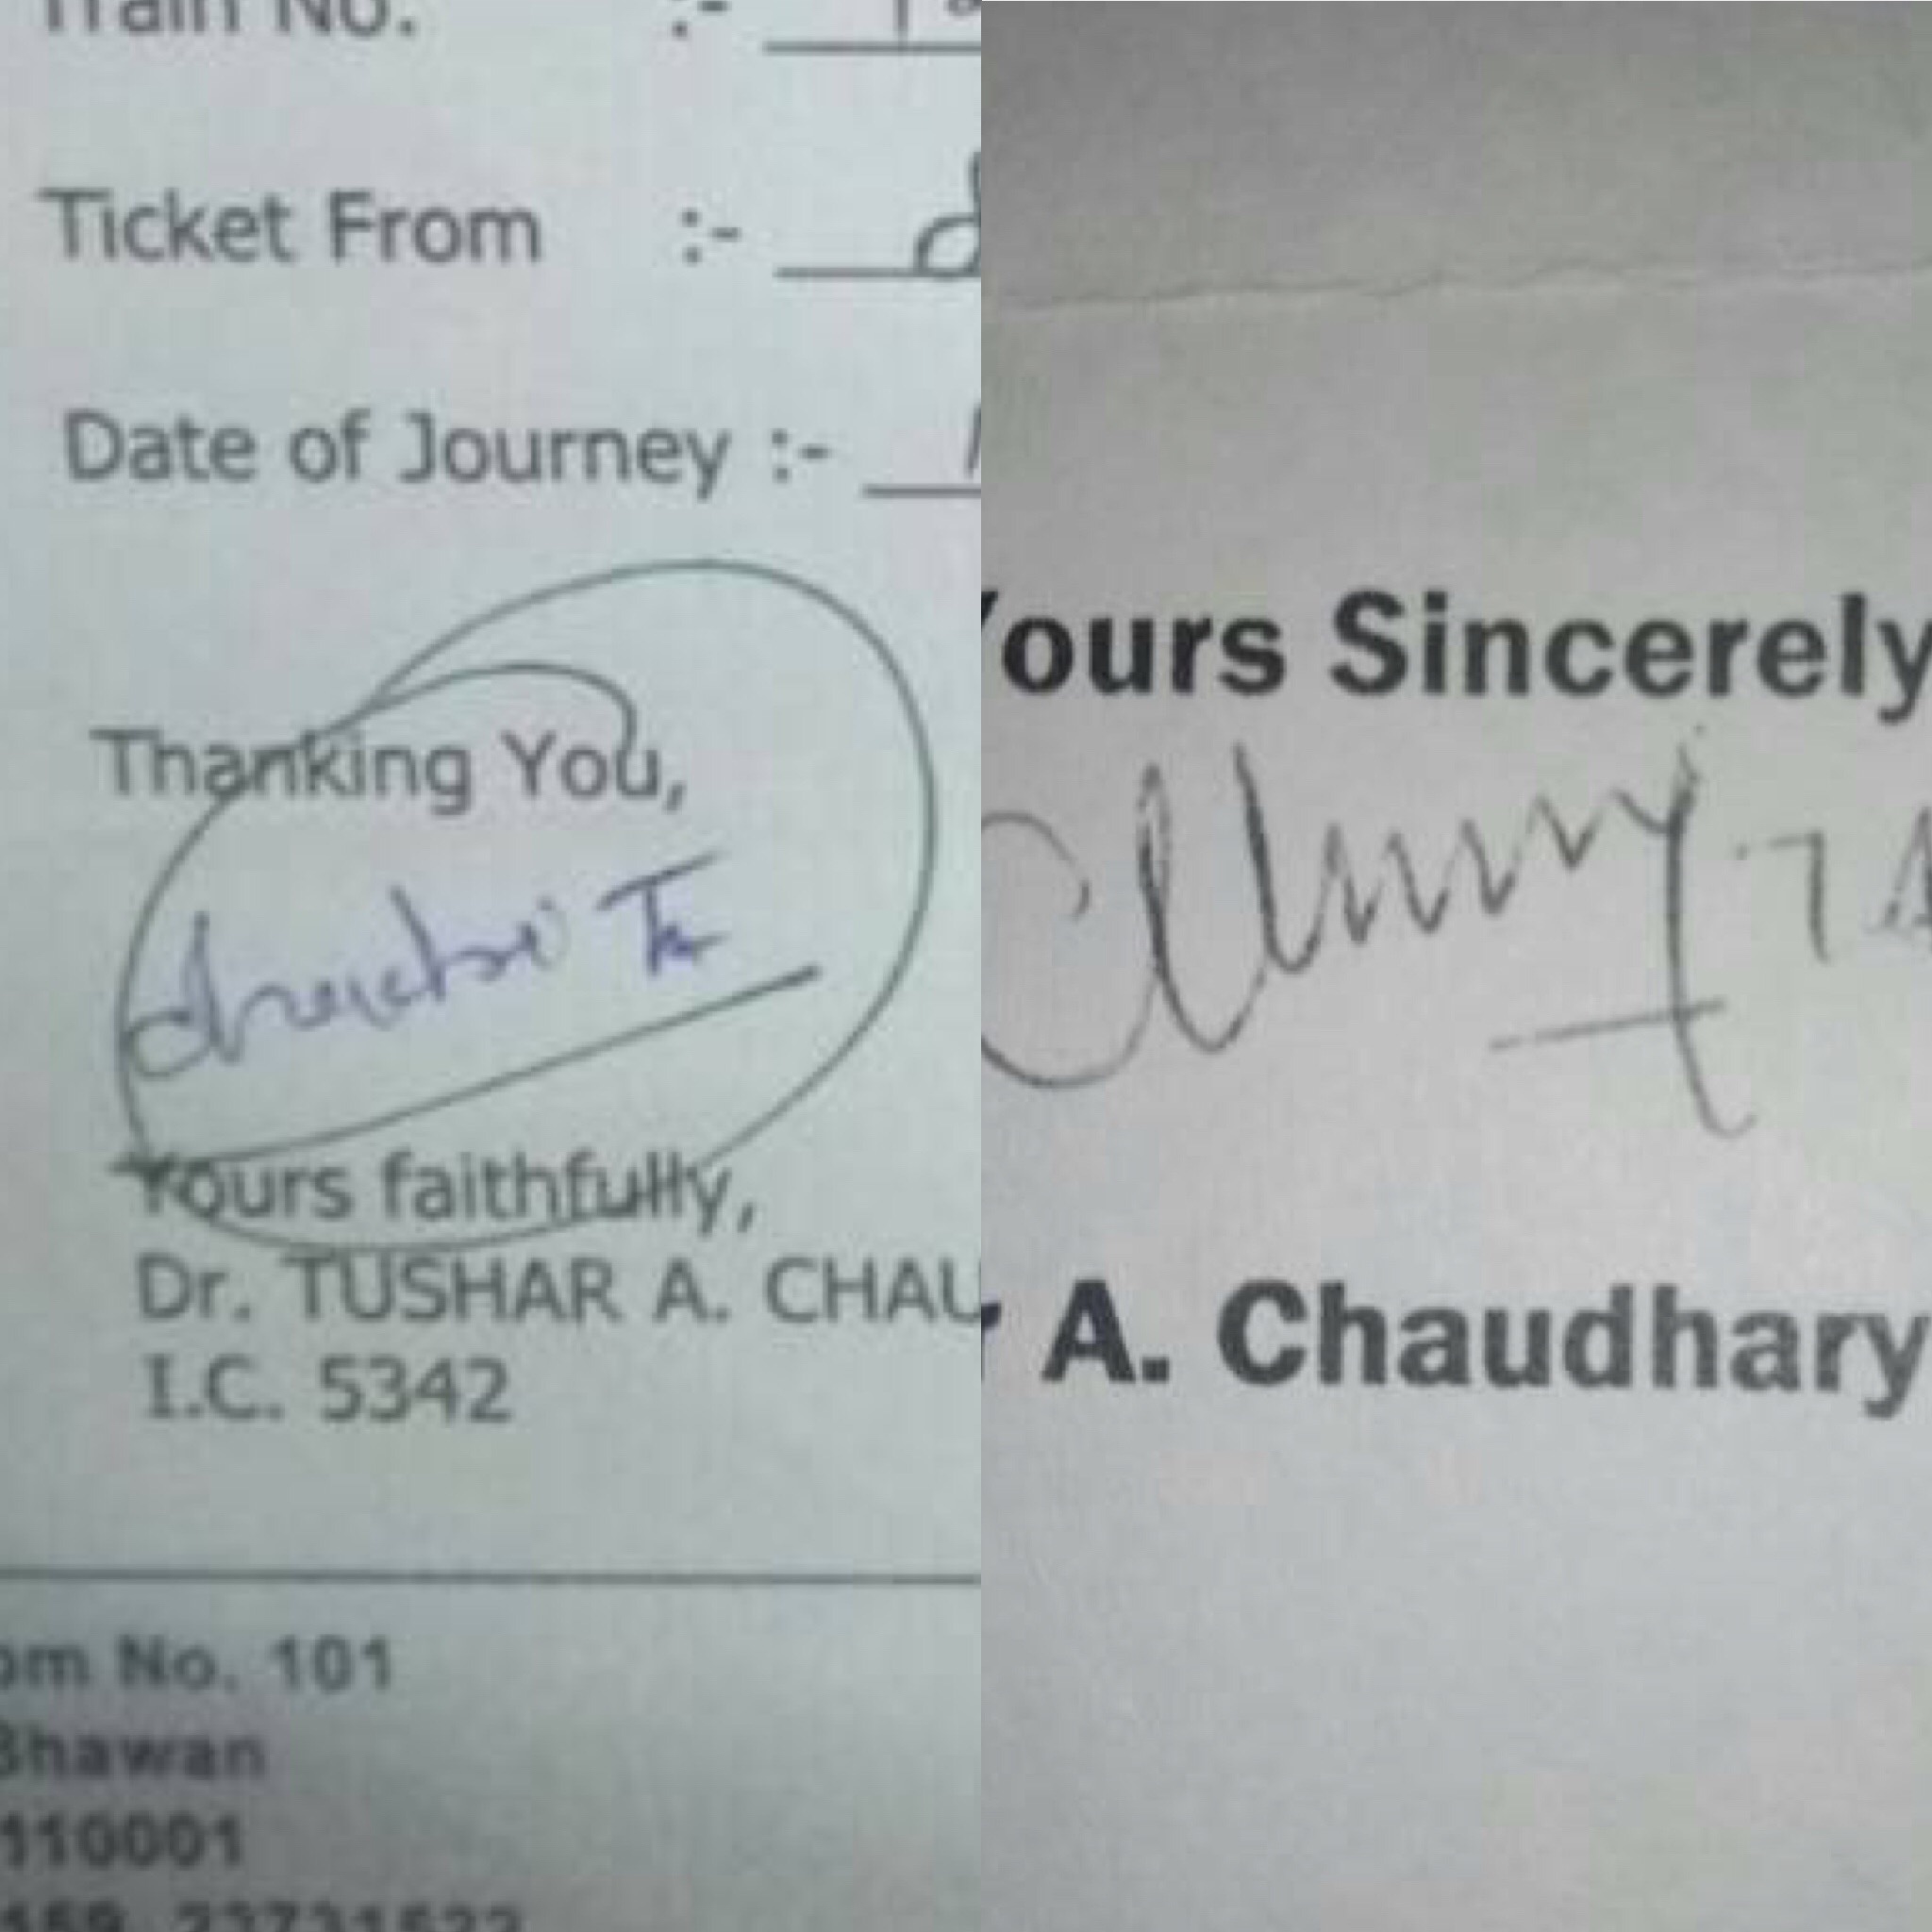 Train No. :-
Ticket From :-
Date of Journey :-
Thanking You,
Yours faithfully,
Dr. TUSHAR A. CHAU
I.C. 5342
om No. 101
Bhawan
110001
159, 23731522
Yours Sincerely
r A. Chaudhary